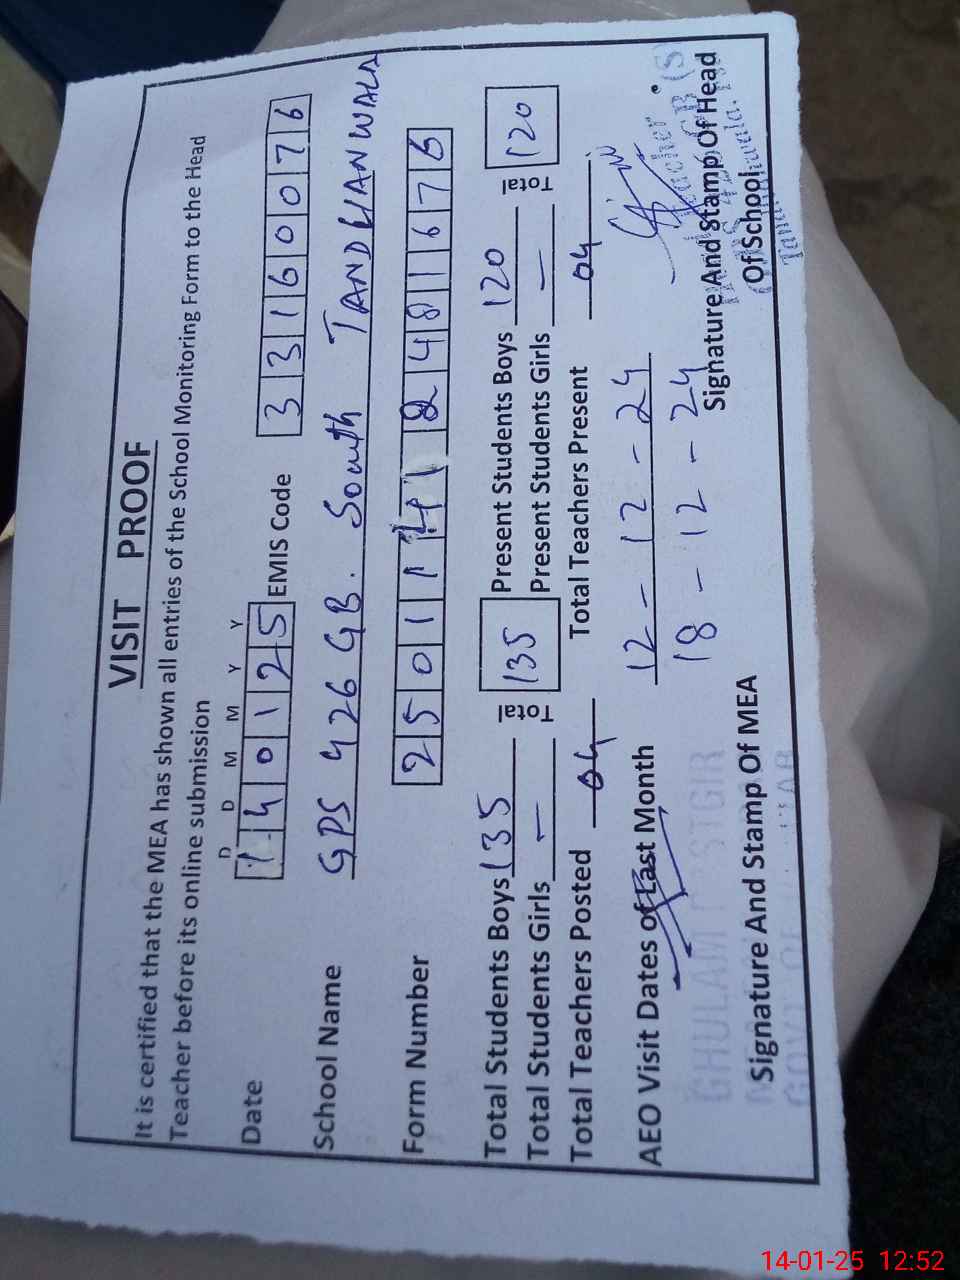 VISIT PROOF
It is certified that the MEA has shown all entries of the School Monitoring Form to the Head
Teacher before its online submission
D D M M Y Y
Date 140125 EMIS Code 33160076
School Name GPS 426 GB. South TANDLIANWALA
Form Number 25011412481676
Total Students Boys 135 Total 135 Present Students Boys 120 Total 120
Total Students Girls — Present Students Girls —
Total Teachers Posted 04 Total Teachers Present 04
AEO Visit Dates of Last Month 12-12-24
18-12-24
GHULAM
Signature And Stamp Of MEA
Signature And Stamp Of Head
Of School
14-01-25 12:52